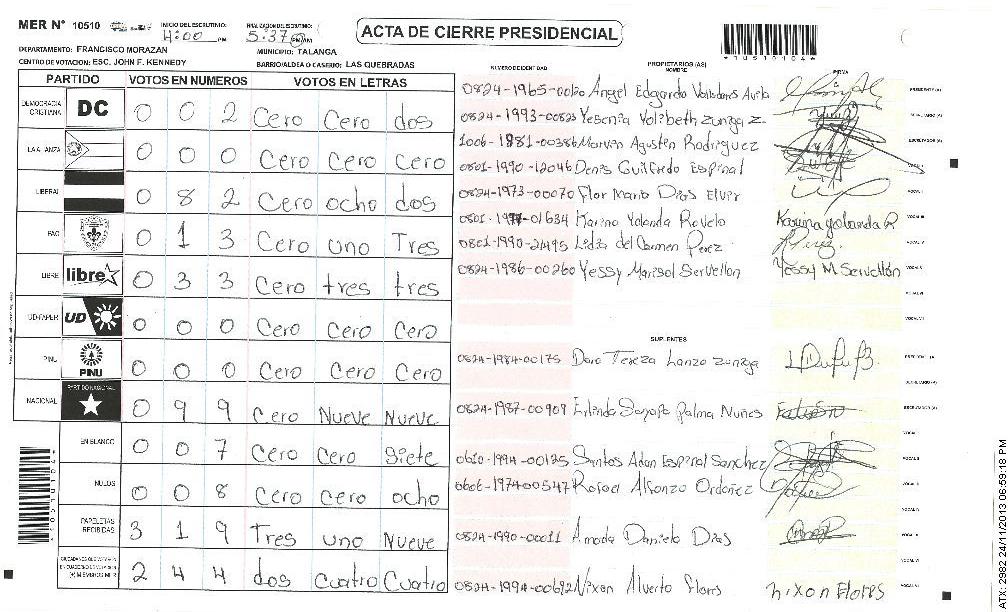 MER N° 10510
INICIO DEL ESCRUTINIO:
4:00 PM
5:37 PM/AM
ACTA DE CIERRE PRESIDENCIAL
*1051010A*
DEPARTAMENTO: FRANCISCO MORAZAN
MUNICIPIO: TALANGA
CENTRO DE VOTACION: ESC. JOHN F. KENNEDY
BARRIO/ALDEA O CASERIO: LAS QUEBRADAS
PARTIDO VOTOS EN NUMEROS VOTOS EN LETRAS
DEMOCRACIA CRISTIANA DC 0 0 2 Cero Cero dos
LA ALIANZA 0 0 0 Cero Cero Cero
LIBERAL 0 8 2 Cero ocho dos
PAC 0 1 3 Cero uno Tres
LIBRE libre 0 3 3 Cero tres tres
UD-FAPER UD 0 0 0 Cero Cero Cero
PINU PINU 0 0 0 Cero Cero Cero
NACIONAL PARTIDO NACIONAL 0 9 9 Cero Nueve Nueve
EN BLANCO 0 0 7 Cero Cero Siete
NULOS 0 0 8 Cero Cero ocho
PAPELETAS RECIBIDAS 3 1 9 Tres uno Nueve
2 4 4 dos Cuatro Cuatro
NUMERO IDENTIDAD
PROPIETARIOS (AS)
NOMBRE
FIRMA
0824-1965-00120 Angel Edgardo Valladares Avila PRESIDENTE (A)
0824-1993-00823 Yesenia Yolibeth Zuniga Z. SECRETARIO (A)
1006-1981-00386 Marvin Agusten Rodriguez ESCRUTADOR (A)
0801-1990-12046 Denis Guilfredo Espinal VOCAL I
0824-1973-00070 Flor Maria Dias Elvir
0801-1977-01634 Karina Yolanda Rovelo Karina Yolanda R
0801-1990-21495 Lidia del Carmen Perez Perez.
0824-1986-00260 Yessy Marisol Servellon Yessy M Servellón
SUPLENTES
0824-1984-00175 Dora Tereza Lanza Zuniga PRESIDENTE (A)
SECRETARIO (A)
0824-1987-00909 Erlinda Palma Nuñes ESCRUTADOR (A)
0610-1994-00125 Santos Adan Espinal Sanchez
0606-1974-00547 Rafael Alfonzo Ordoñez
0824-1990-00011 Amada Daniela Dias
0824-1994-00692 Nixon Alverto Flores Nixon Flores
ATX-2982 24/11/2013 06:59:18 PM